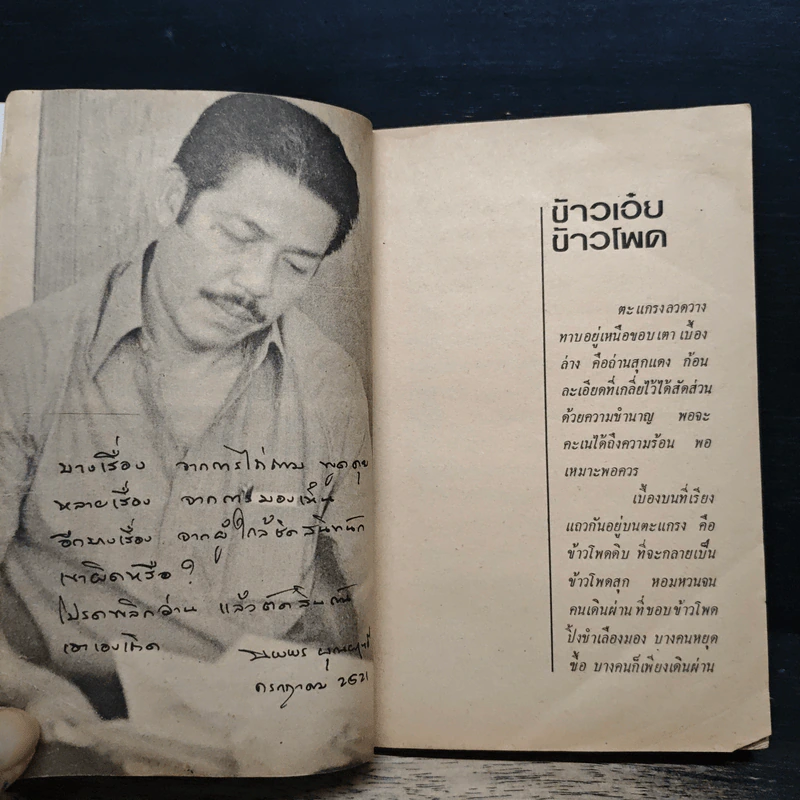 บางเรื่อง จากการไถ่ถาม พูดคุย
หลายเรื่อง จากการมองเห็น
อีกบางเรื่อง จากผู้ใกล้ชิดสนิทนัก
เขาผิดหรือ?
โปรดพลิกอ่าน แล้วตัดสินกัน
เอาเองเถิด
กรกฎาคม 2521
ข้าวเอ๋ย
ข้าวโพด
ตะแกรงลวดวาง
ทาบอยู่เหนือขอบเตา เบื้อง
ล่าง คือถ่านสุกแดง ก้อน
ละเอียดที่เกลี่ยไว้ได้สัดส่วน
ด้วยความชำนาญ พอจะ
คะเนได้ถึงความร้อน พอ
เหมาะพอควร
เบื้องบนที่เรียง
แถวกันอยู่บนตะแกรง คือ
ข้าวโพดดิบ ที่จะกลายเป็น
ข้าวโพดสุก หอมหวนจน
คนเดินผ่าน ที่ชอบข้าวโพด
ปิ้งชำเลืองมอง บางคนหยุด
ซื้อ บางคนก็เพียงเดินผ่าน